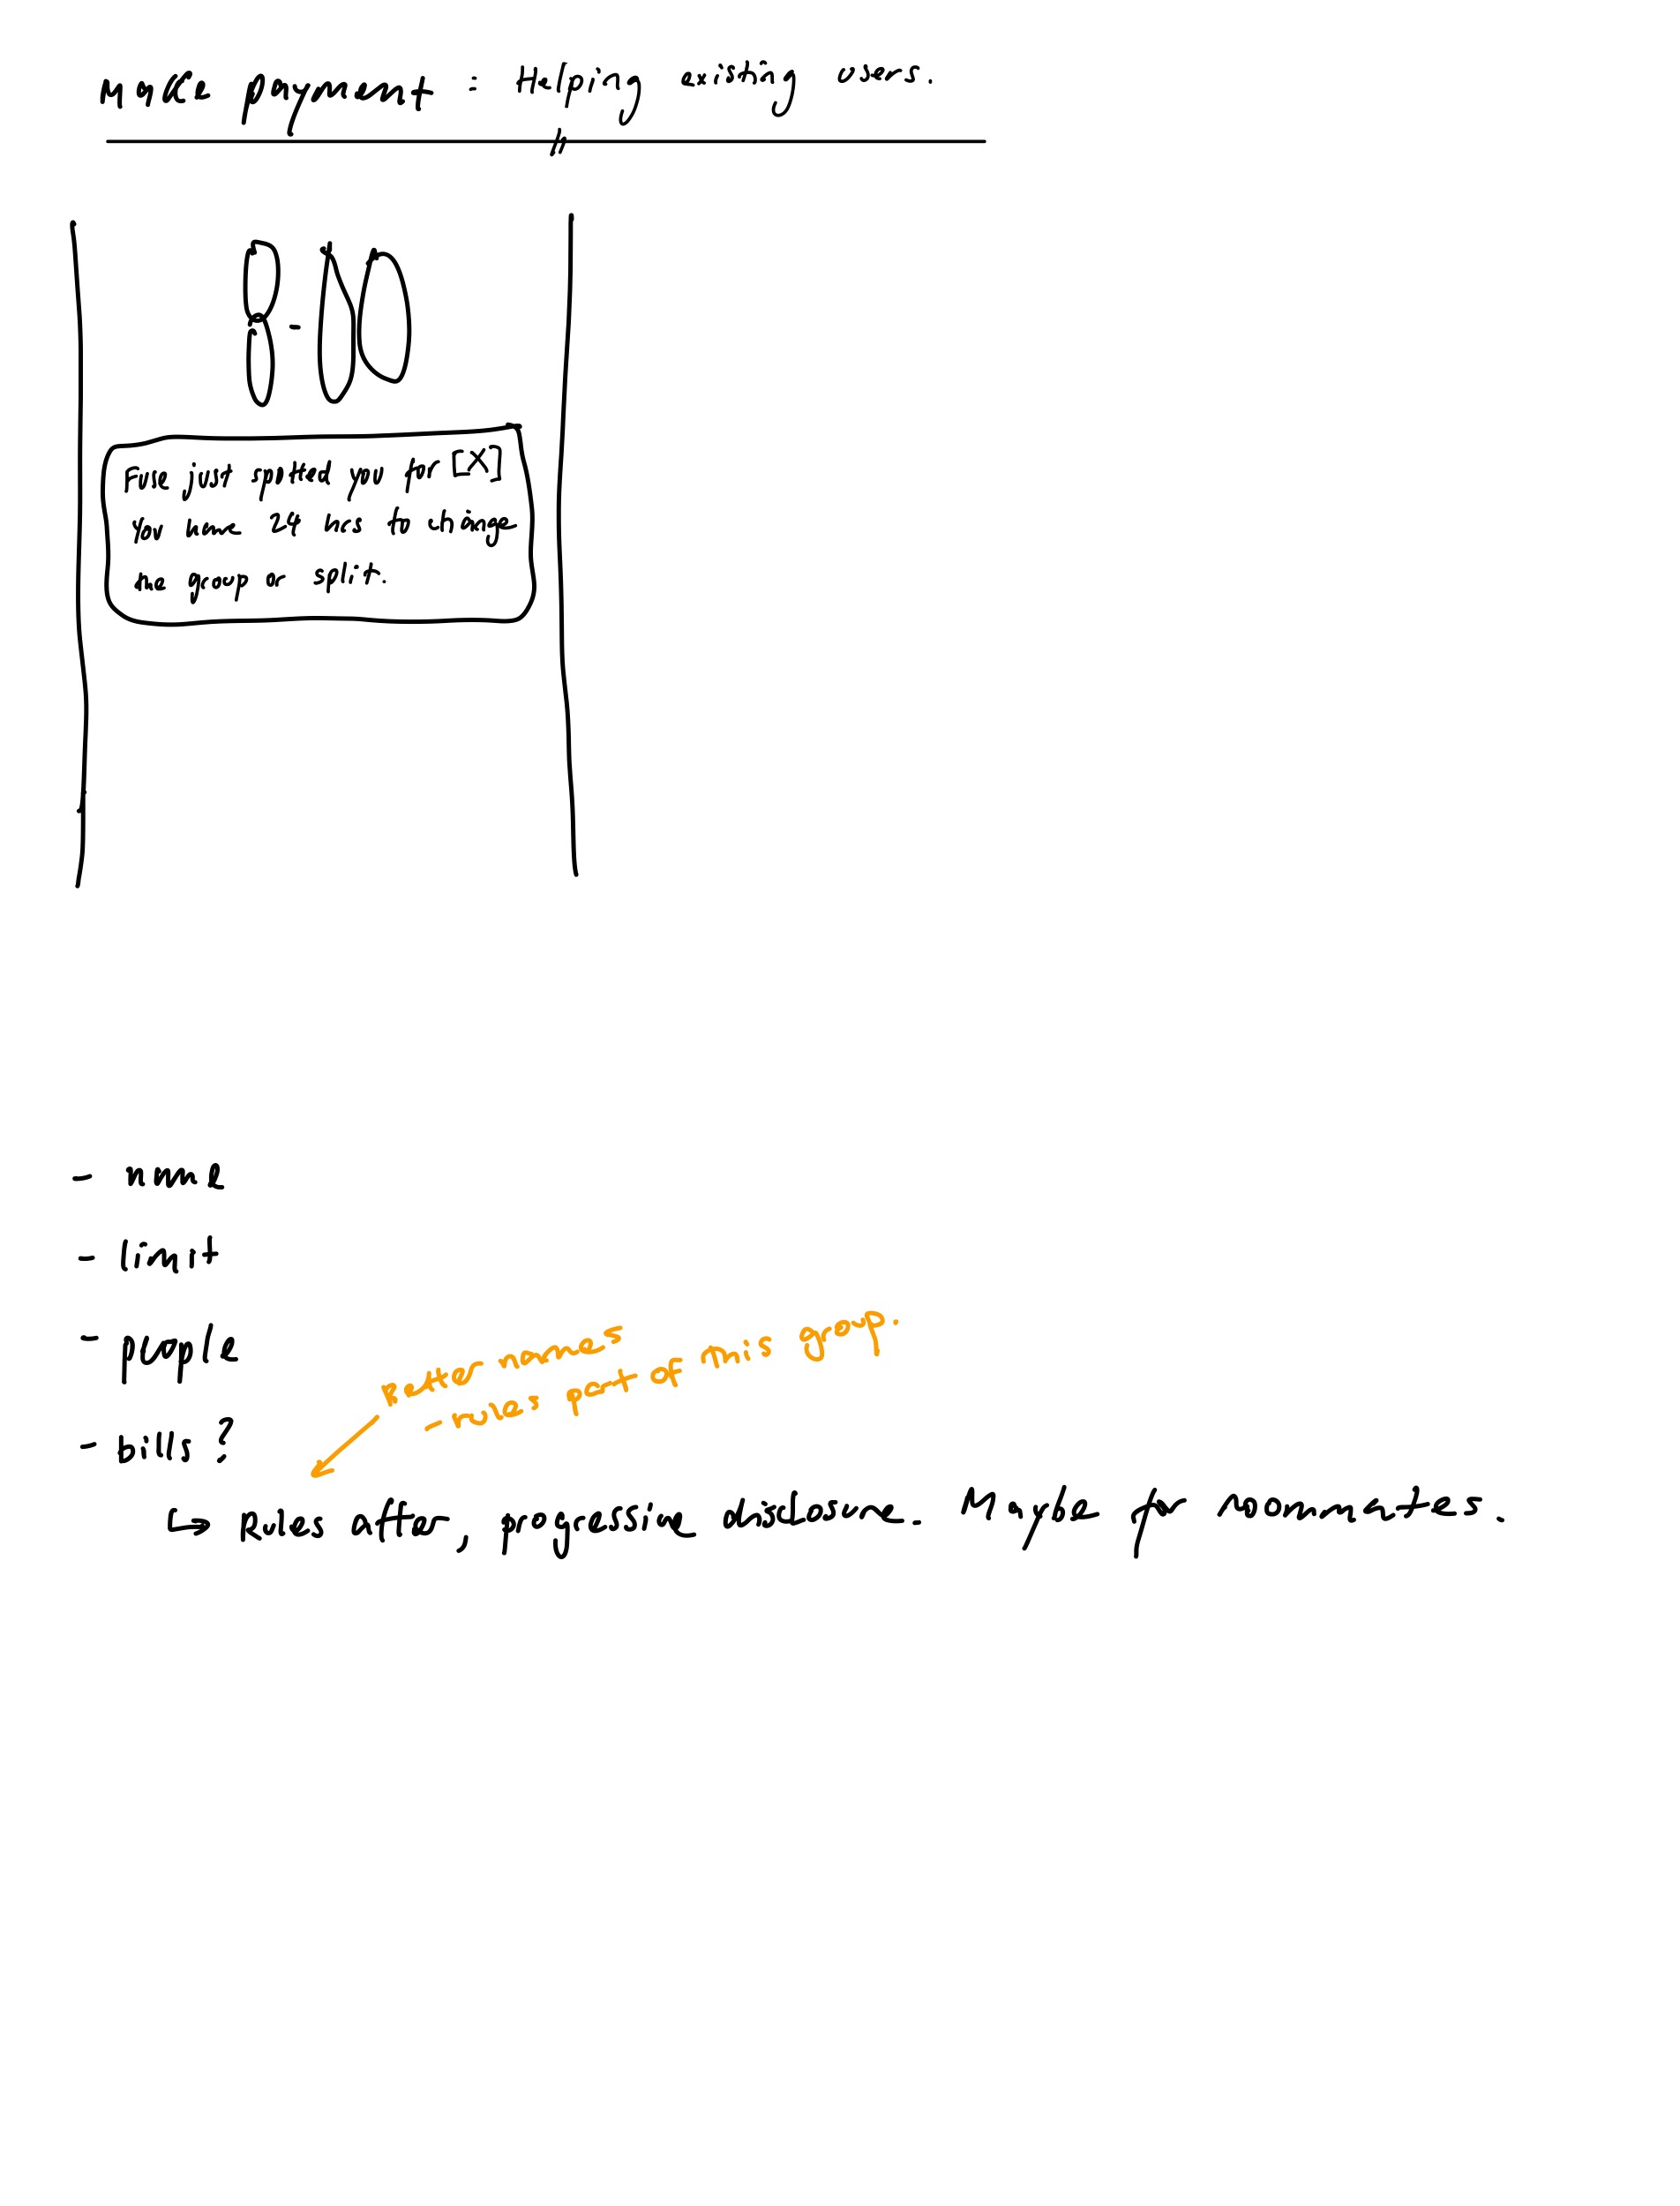 Make payment : Helping existing users.
8-00
Fuse just spotted you for [X]
You have 24 hrs to change
the group or split.
- name
- limit
- people
- bills?
better names
- rules part of this group.
↳ Rules after, progressive disclosure. Maybe for roommates.